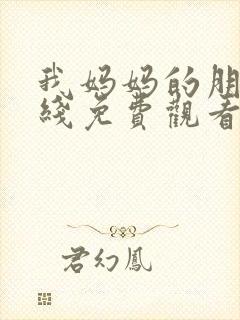 我妈妈的朋
綫免費觀看
君幻鳳